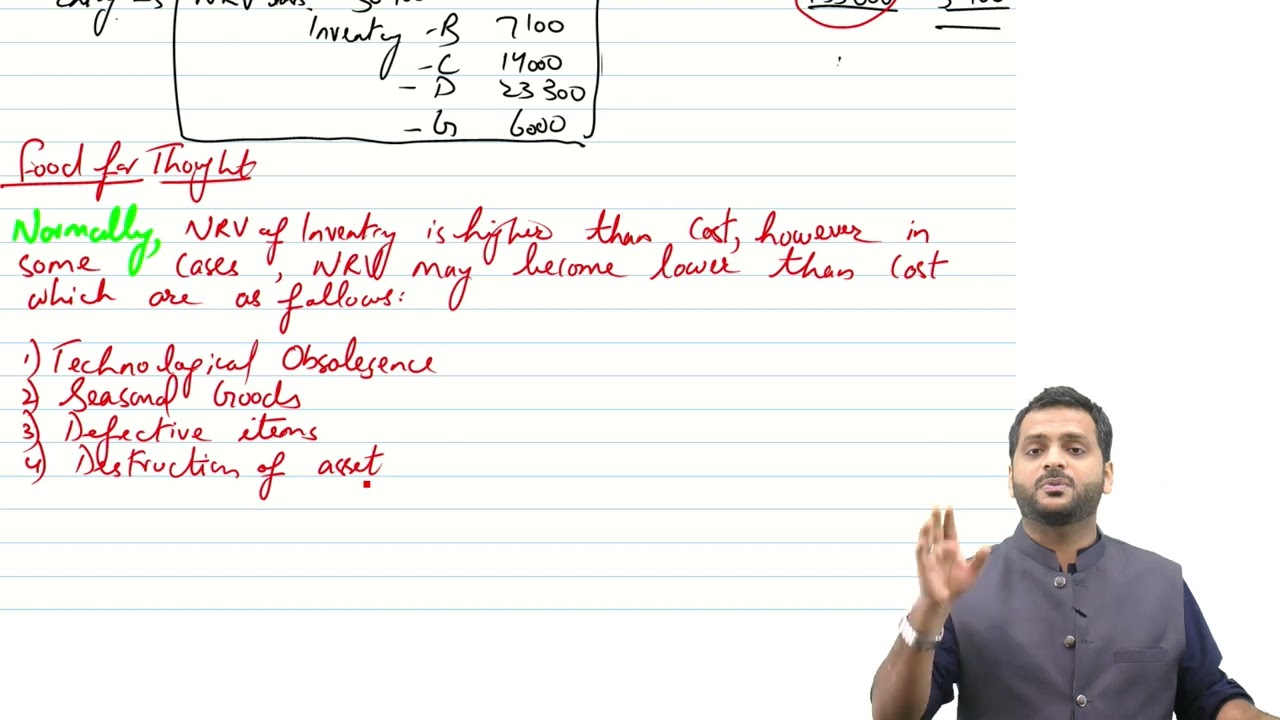 Inventory - B 7100
- C 14000
- D 23300
- G 6000
Food for Thought
Normally, NRV of Inventry is higher than Cost, however in
some cases, NRV may become lower than Cost
which are as follows:
1) Technological Obsolesence
2) Seasonal Goods
3) Defective items
4) Destruction of asset